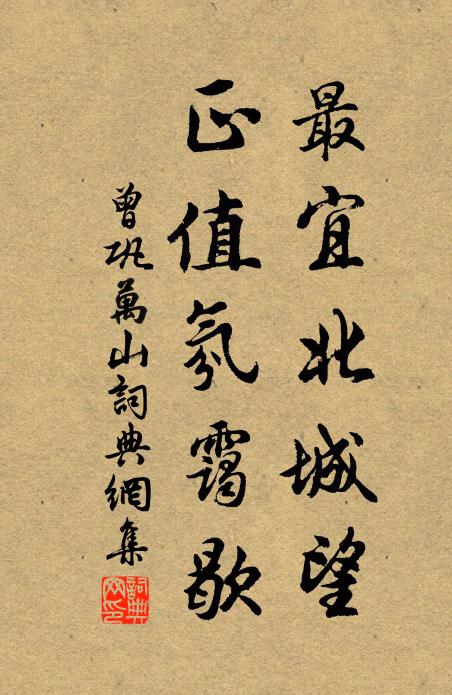 最宜北城望
正值氛靄歇
曾巩萬山詞典網集
詞典网印